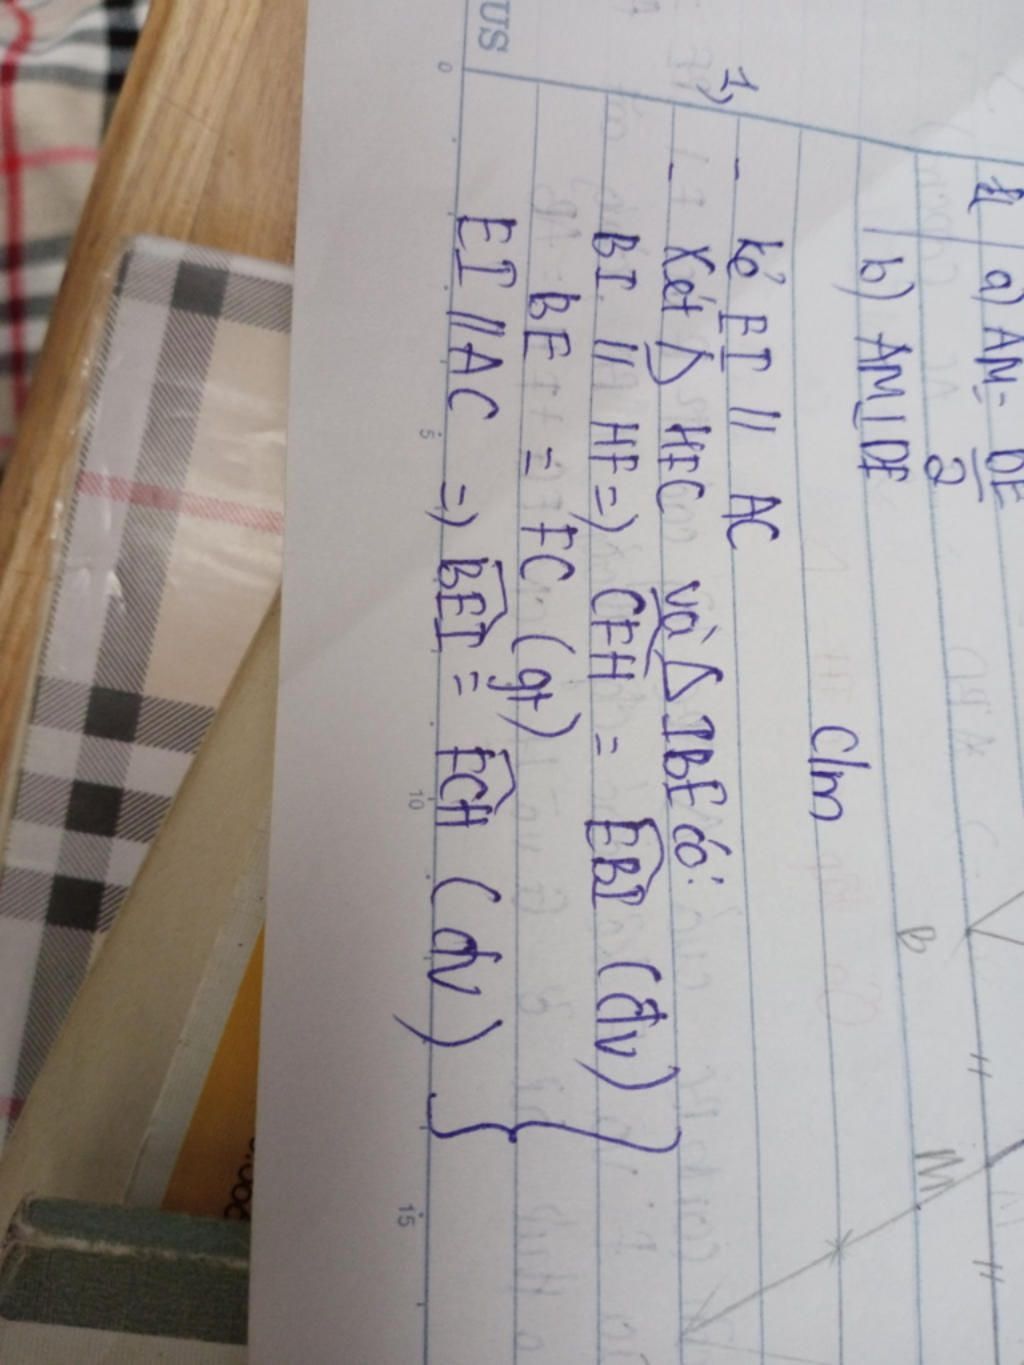 US
kl a) AM = DE
2
b) AM ⊥ DE
C/m
1,
- Kẻ EI // AC
- Xét Δ HFC và Δ IBE có:
BI // HF => CFH = EBI (đv)
BE = FC (gt)
EI // AC => BEI = FCH (đv)
B
M
0
5
10
15